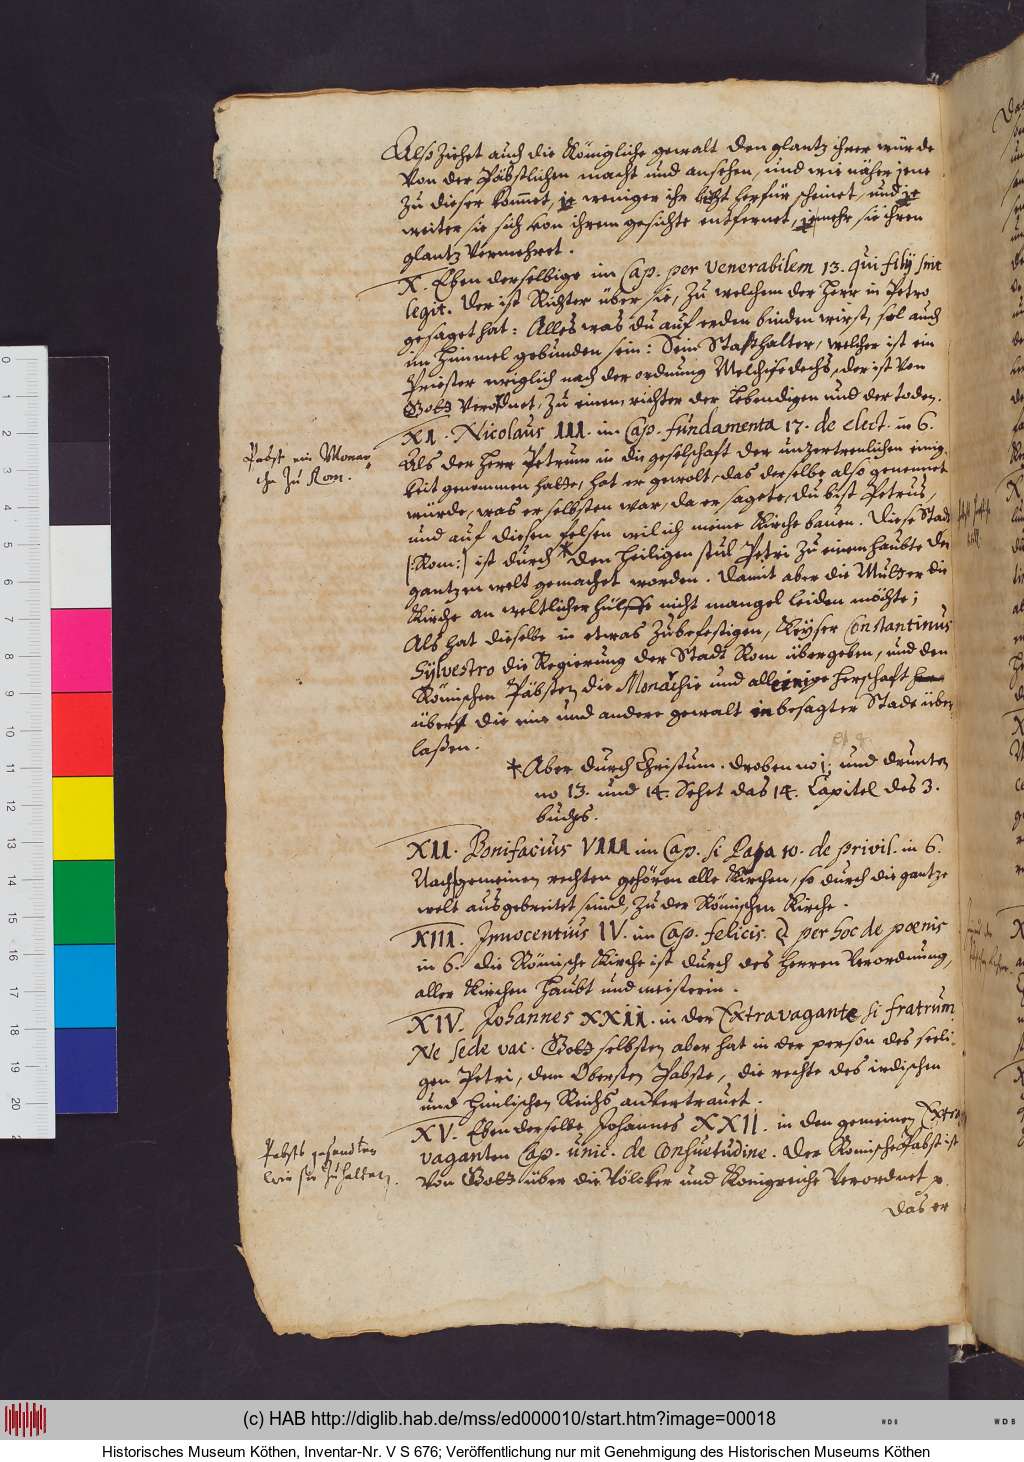 Also ziehet auch die Königliche gewalt den glantz ihrer würde
von der Päbstlichen macht und ansehen, und wie näher jene
zu dieser kommet, je weniger ihr licht herfür scheinet, und je
weiter sie sich von ihrem gesichte entfernet, je mehr sie ihren
glantz vermehret.
X. Eben derselbige im Cap. per Venerabilem 13. qui filij sint
legit. Der ist Richter über sie, zu welchem der Herr in Petro
gesaget hat: Alles was du auf erden binden wirst, sol auch
im Himmel gebunden sein: Sein Stathalter, welcher ist ein
Priester ewiglich nach der ordnung Melchisedechs, der ist von
Gott verordnet, zu einem richter der lebendigen und der toden.
XI. Nicolaus III. im Cap. fundamenta 17. de elect. in 6.
Als der Herr Petrum in die geselschaft der unzertrenlichen einig-
keit genommen hatte, hat er gewolt, das derselbe also genennet
würde, was er selbsten war, da er sagete, du bist Petrus,
und auf diesen felsen wil ich meine Kirche bauen. Diese Stadt
(:Rom:) ist durch * den heiligen stul Petri zu einem haubte der
gantzen welt gemachet worden. Damit aber die Mutter die
Kirche an weltlicher hülffe nicht mangel leiden möchte;
Als hat dieselbe in etwas zubefestigen, Keyser Constantinus
Sylvestro die Regierung der Stadt Rom übergeben, und den
Römischen Päbsten die Monarchie und alleinige herschaft
über die eine und andere gewalt in besagter Stadt über-
laßen.
Pabst ein Monar-
che zu Rom.
* Aber durch Christum. droben no 1. und drunten
no 13. und 14. Sehet das 14. Capitel des 3.
buchs.
XII. Bonifacius VIII im Cap. si Papa 10. de privil. in 6.
Nach gemeinen rechten gehören alle Kirchen, so durch die gantze
welt ausgebreitet seind, zu der Römischen Kirche.
XIII. Innocentius IV. im Cap. felicis. § per hoc de poenis
in 6. die Römische Kirche ist durch des Herren verordnung,
aller Kirchen Haubt und meisterin.
XIV. Johannes XXII. in der Extravagante si fratrum
Ne sede vac. Gott selbsten aber hat in der person des seeli-
gen Petri, dem Obersten Pabste, die rechte des irdischen
und himlischen Reichs anvertrauet.
XV. Eben derselbe Johannes XXII. in den gemeinen Extra-
vaganten Cap. unic. de Consuetudine. Der Römische Pabst ist
von Gott über die Völcker und Königreiche verordnet
das er
Pabsts gesandten
wie sie zuhalten.
(c) HAB http://diglib.hab.de/mss/ed000010/start.htm?image=00018
Historisches Museum Köthen, Inventar-Nr. V S 676; Veröffentlichung nur mit Genehmigung des Historischen Museums Köthen